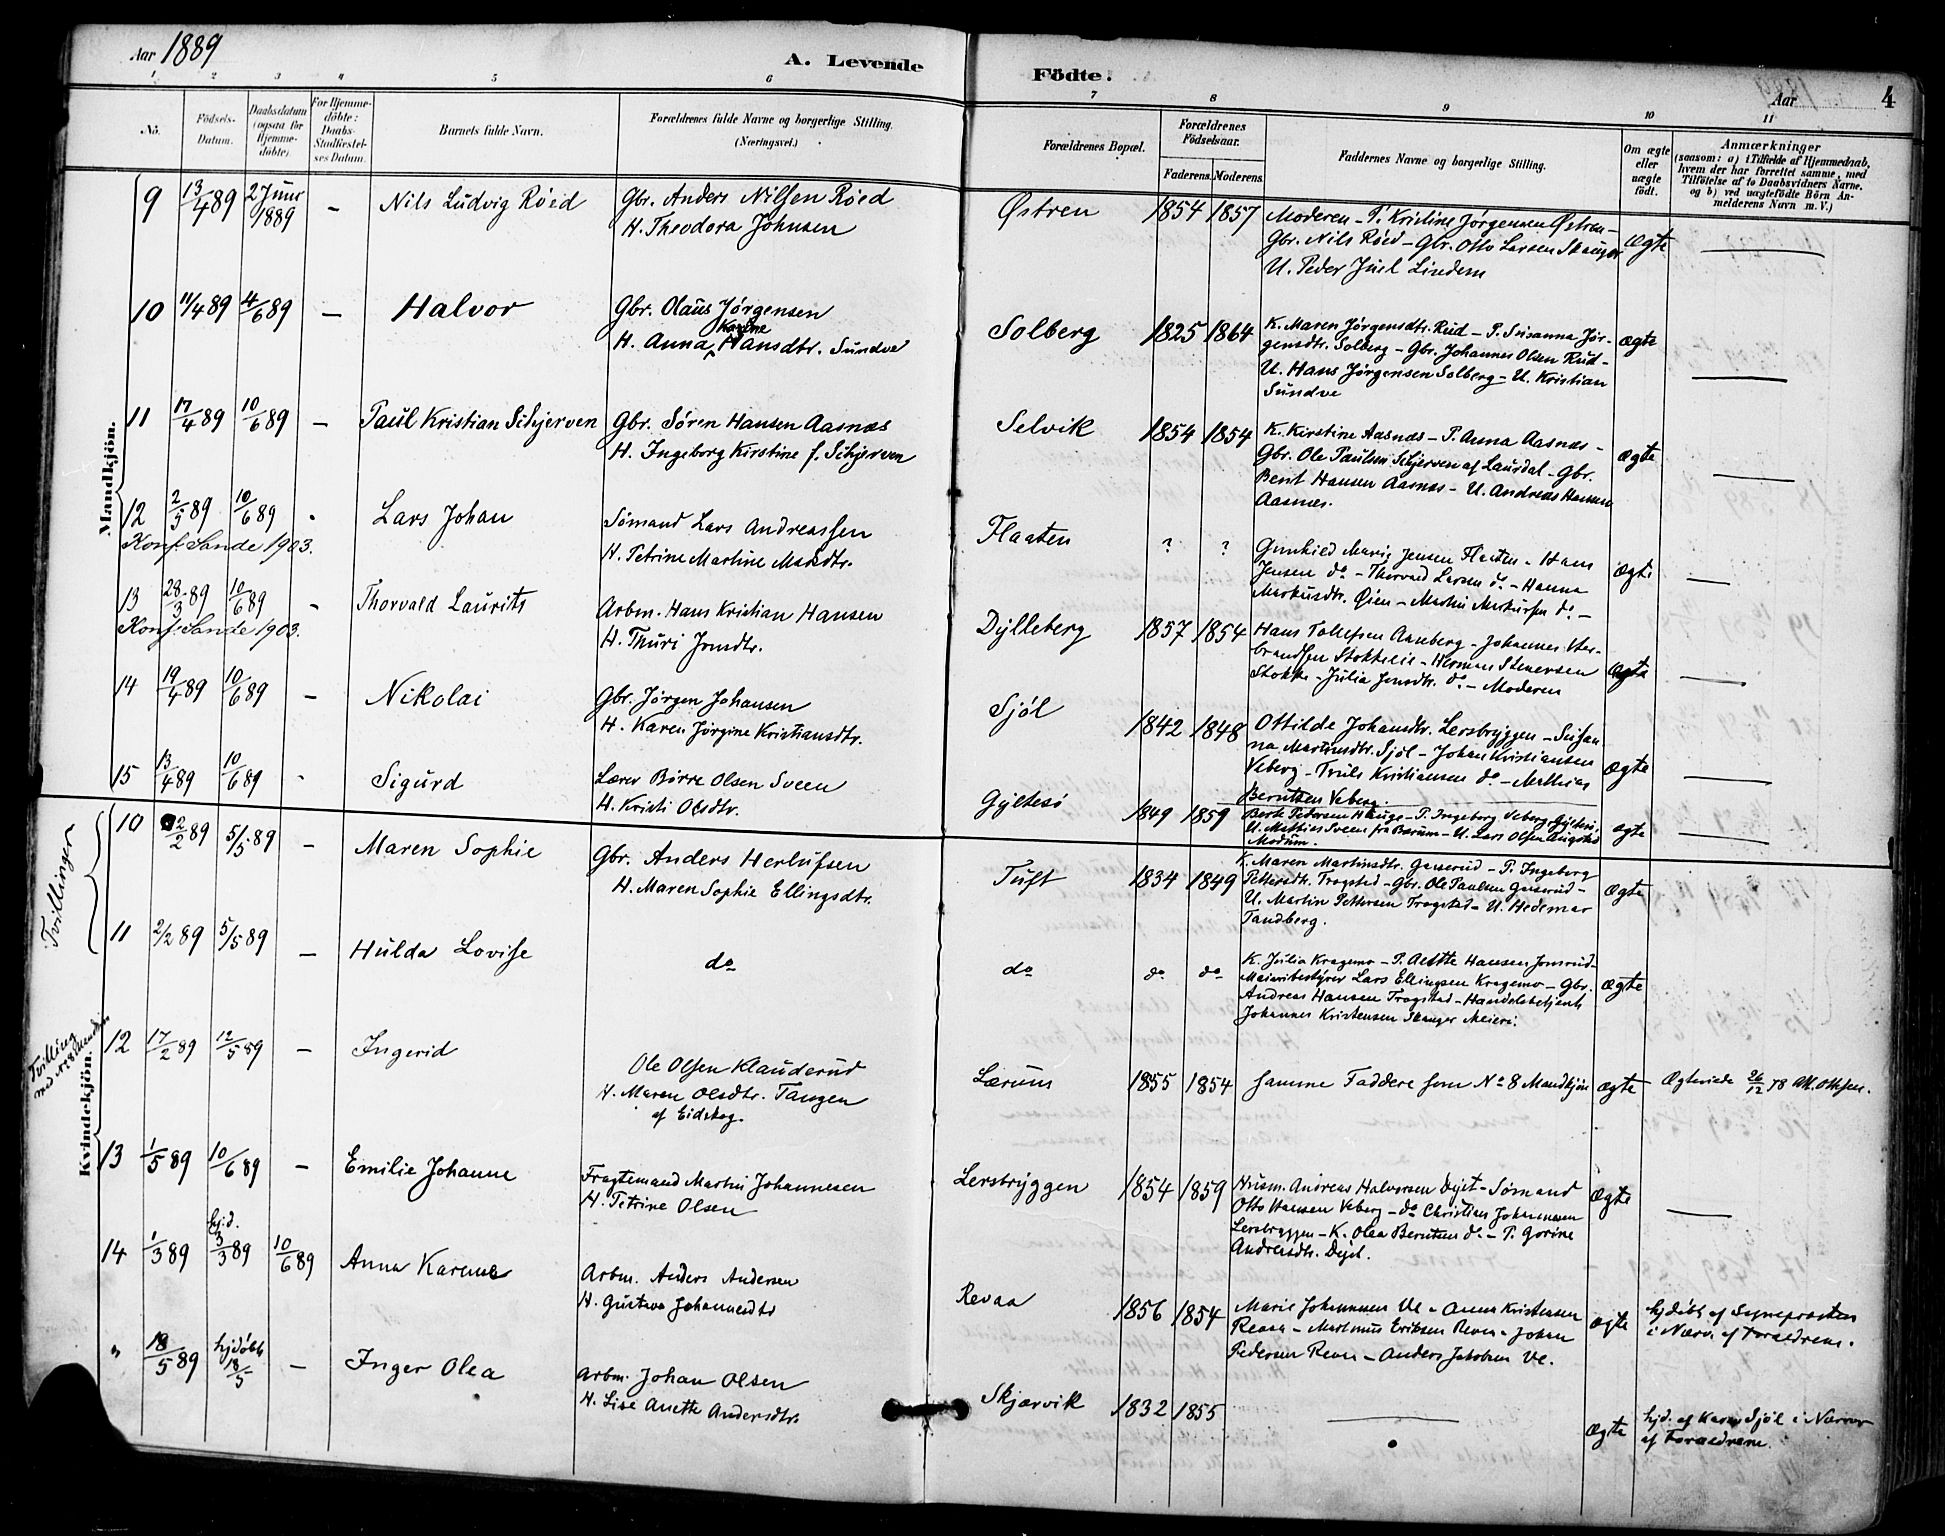 Aar 1889
A. Levende Födte.
Aar
4
1 2 3 4 5 6 7 8 9 10 11
No.
Födsels-Datum.
Daabsdatum (ogsaa for Hjemme-döbte).
For Hjemme-döbte: Daabs-Stadfestel-ses Datum.
Barnets fulde Navn.
Forældrenes fulde Navne og borgerlige Stilling. (Næringsvei.)
Forældrenes Bopæl.
Forældrenes Födselsaar.
Faderens. Moderens.
Faddernes Navne og borgerlige Stilling.
Om ægte eller uægte födt.
Anmærkninger
(saasom: a) i Tilfælde af Hjemmedaab,
hvem der har forrettet samme, med
Tilföielse af to Daabsvidners Navne,
og b) ved uægtefödte Börn An-
melderens Navn m. V.)
Mandkjön.
9 13/4 89 2 Juni 1889 – Nils Ludvig Röed
Gbr. Anders Nilsen Röed
H. Theodora Johnsen
Østren 1854 1857
Moderen – P. Kristine Jørgensen Østren –
Gbr. Nils Röed – Gbr. Otto Larsen Skauger
U. Peder Juel Lindem
Ægte
10 11/4 89 4/6 89 – Halvor
Gbr. Olaus Jørgensen
H. Anna Karine Hansdtr. Sundve
Solberg 1825 1864
K. Maren Jørgensdtr. Rud – P. Susanna Jør-
gensdtr. Solberg – Gbr. Johannes Olsen Rud –
U. Hans Jørgensen Solberg – U. Kristian
Sundve
ægte
11 17/4 89 10/6 89 – Paul Kristian Schjerven
Gbr. Søren Hansen Aasnæs
H. Ingeborg Kirstine f. Schjerven
Selvik 1854 1854
K. Kirstine Aasnæs – P. Anna Aasnæs –
Gbr. Ole Paulsen Schjerven af Laurdal – Gbr.
Bent Hansen Aasnæs – U. Andreas Hansen
Aasnæs.
Ægte
12 2/5 89 10/6 89 Lars Johan
Konf. Sande 1903.
Sømand Lars Andreassen
H. Petrine Martine
Flaaten ? ?
Gunhild Marie Jensen Flaaten – Hans
Jensen do – Thorvald Larsen do – Hanna
Markusdtr. Øien – Martin Markussen do –
Ægte
13 28/3 89 10/6 89 – Thorvald Laurits
Konf. Sande 1903.
Arbm. Hans Kristian Hansen
H. Thuri Jonsdtr.
Dylleberg 1857 1854
Hans Tollefsen Aaneberg – Johannes
Stokkelie – Herman Stenersen
Stokke – Julia Jonsdtr. do – Moderen
Ægte
14 19/4 89 10/6 89 – Nikolai
Gbr. Jørgen Johansen
H. Karen Jørgine Kristiansdtr.
Sjøl 1842 1848
Ottilde Johansdtr. Lersbryggen – Susan
na Martinsdtr. Sjøl – Johan Kristiansen
Veberg – Truls Kristiansen do – Mathias
Berntsen Veberg.
Ægte
15 13/4 89 10/6 89 Sigurd
Lærer Börre Olsen Sveen
H. Kristi Olsdtr.
Gyltesö 1849 1859
Berte Pedersen Hauge – P. Ingeborg Veberg, Gyltesö,
U. Mathias Sveen fra Bærum – U. Lars Olsen
Modum.
ægte
Kvindekjön.
Tvillinger
10 2/2 89 5/5 89 – Maren Sophie
Gbr. Anders Herlufsen
H. Maren Sophie Ellingsdtr.
Tuft 1834 1849
K. Maren Martinsdtr. Guserud – P. Ingeborg
Pettersdtr. Trogstad – Gbr. Ole Paulsen Guserud –
U. Martin Pettersen Trogstad – U. Hedemar
Tandberg.
Ægte
11 2/2 89 5/5 89 – Hulda Lovise
do
do do do
K. Julia Kragemo – P. Anette Hansen Jonsrud –
Meieribestyrer Lars Ellingsen Kragemo – Gbr.
Andreas Hansen Trogstad – Handelsbetjent
Johannes Kristensen Skauger Meieri.
Ægte
Tvilling med No 8 Mandkjön
12 17/2 89 12/5 89 – Ingerid
Ole Olsen Klauderud
H. Maren Olsdtr. Tangen
af Eidskog.
Lærum 1855 1854
samme Faddere som No 8 Mandkjön
Ægte
Ægteviede 26/12 78
13 1/5 89 10/6 89 – Emilie Johanne
Fragtemand Martin Johannesen
H. Petrine Olsen
Lersbryggen 1854 1859
Husm. Andreas Halvorsen Dejet – Sømand
Otto Hansen Veberg – do Christian Johannesen
Lersbryggen – K. Olea Berntsen do – P. Gorine
Andersdtr. Dejet.
Ægte
14 1/3 89 hjd. 3/3 89 10/6 89 Anna Karene
Arbm. Anders Andersen
H. Gustava Johannesdtr
Revaa 1856 1854
Marie Johannesen Ve – Anna Kristensen
Revaa – Martinus Eriksen Revaa – Johan
Pedersen Revaa – Anders Jakobsen Ve.
Ægte
hjdöbt af Sognepræsten
i Nærv. af Foraeldrene.
" 18/5 89 hjdöbt 18/5 – Inger Olea
Arbm. Johan Olsen
H. Lise Anette Andersdtr.
Skjærvik 1832 1855
Ægte
hjd. af Karen Sjöl i Nærvær
af Foraeldrene.